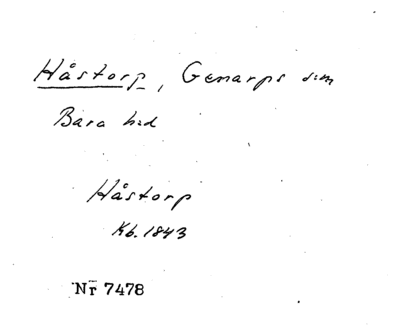 Håstorp, Genarps s:n
Bara h:d
Håstorp
Kb. 1843
Nr 7478